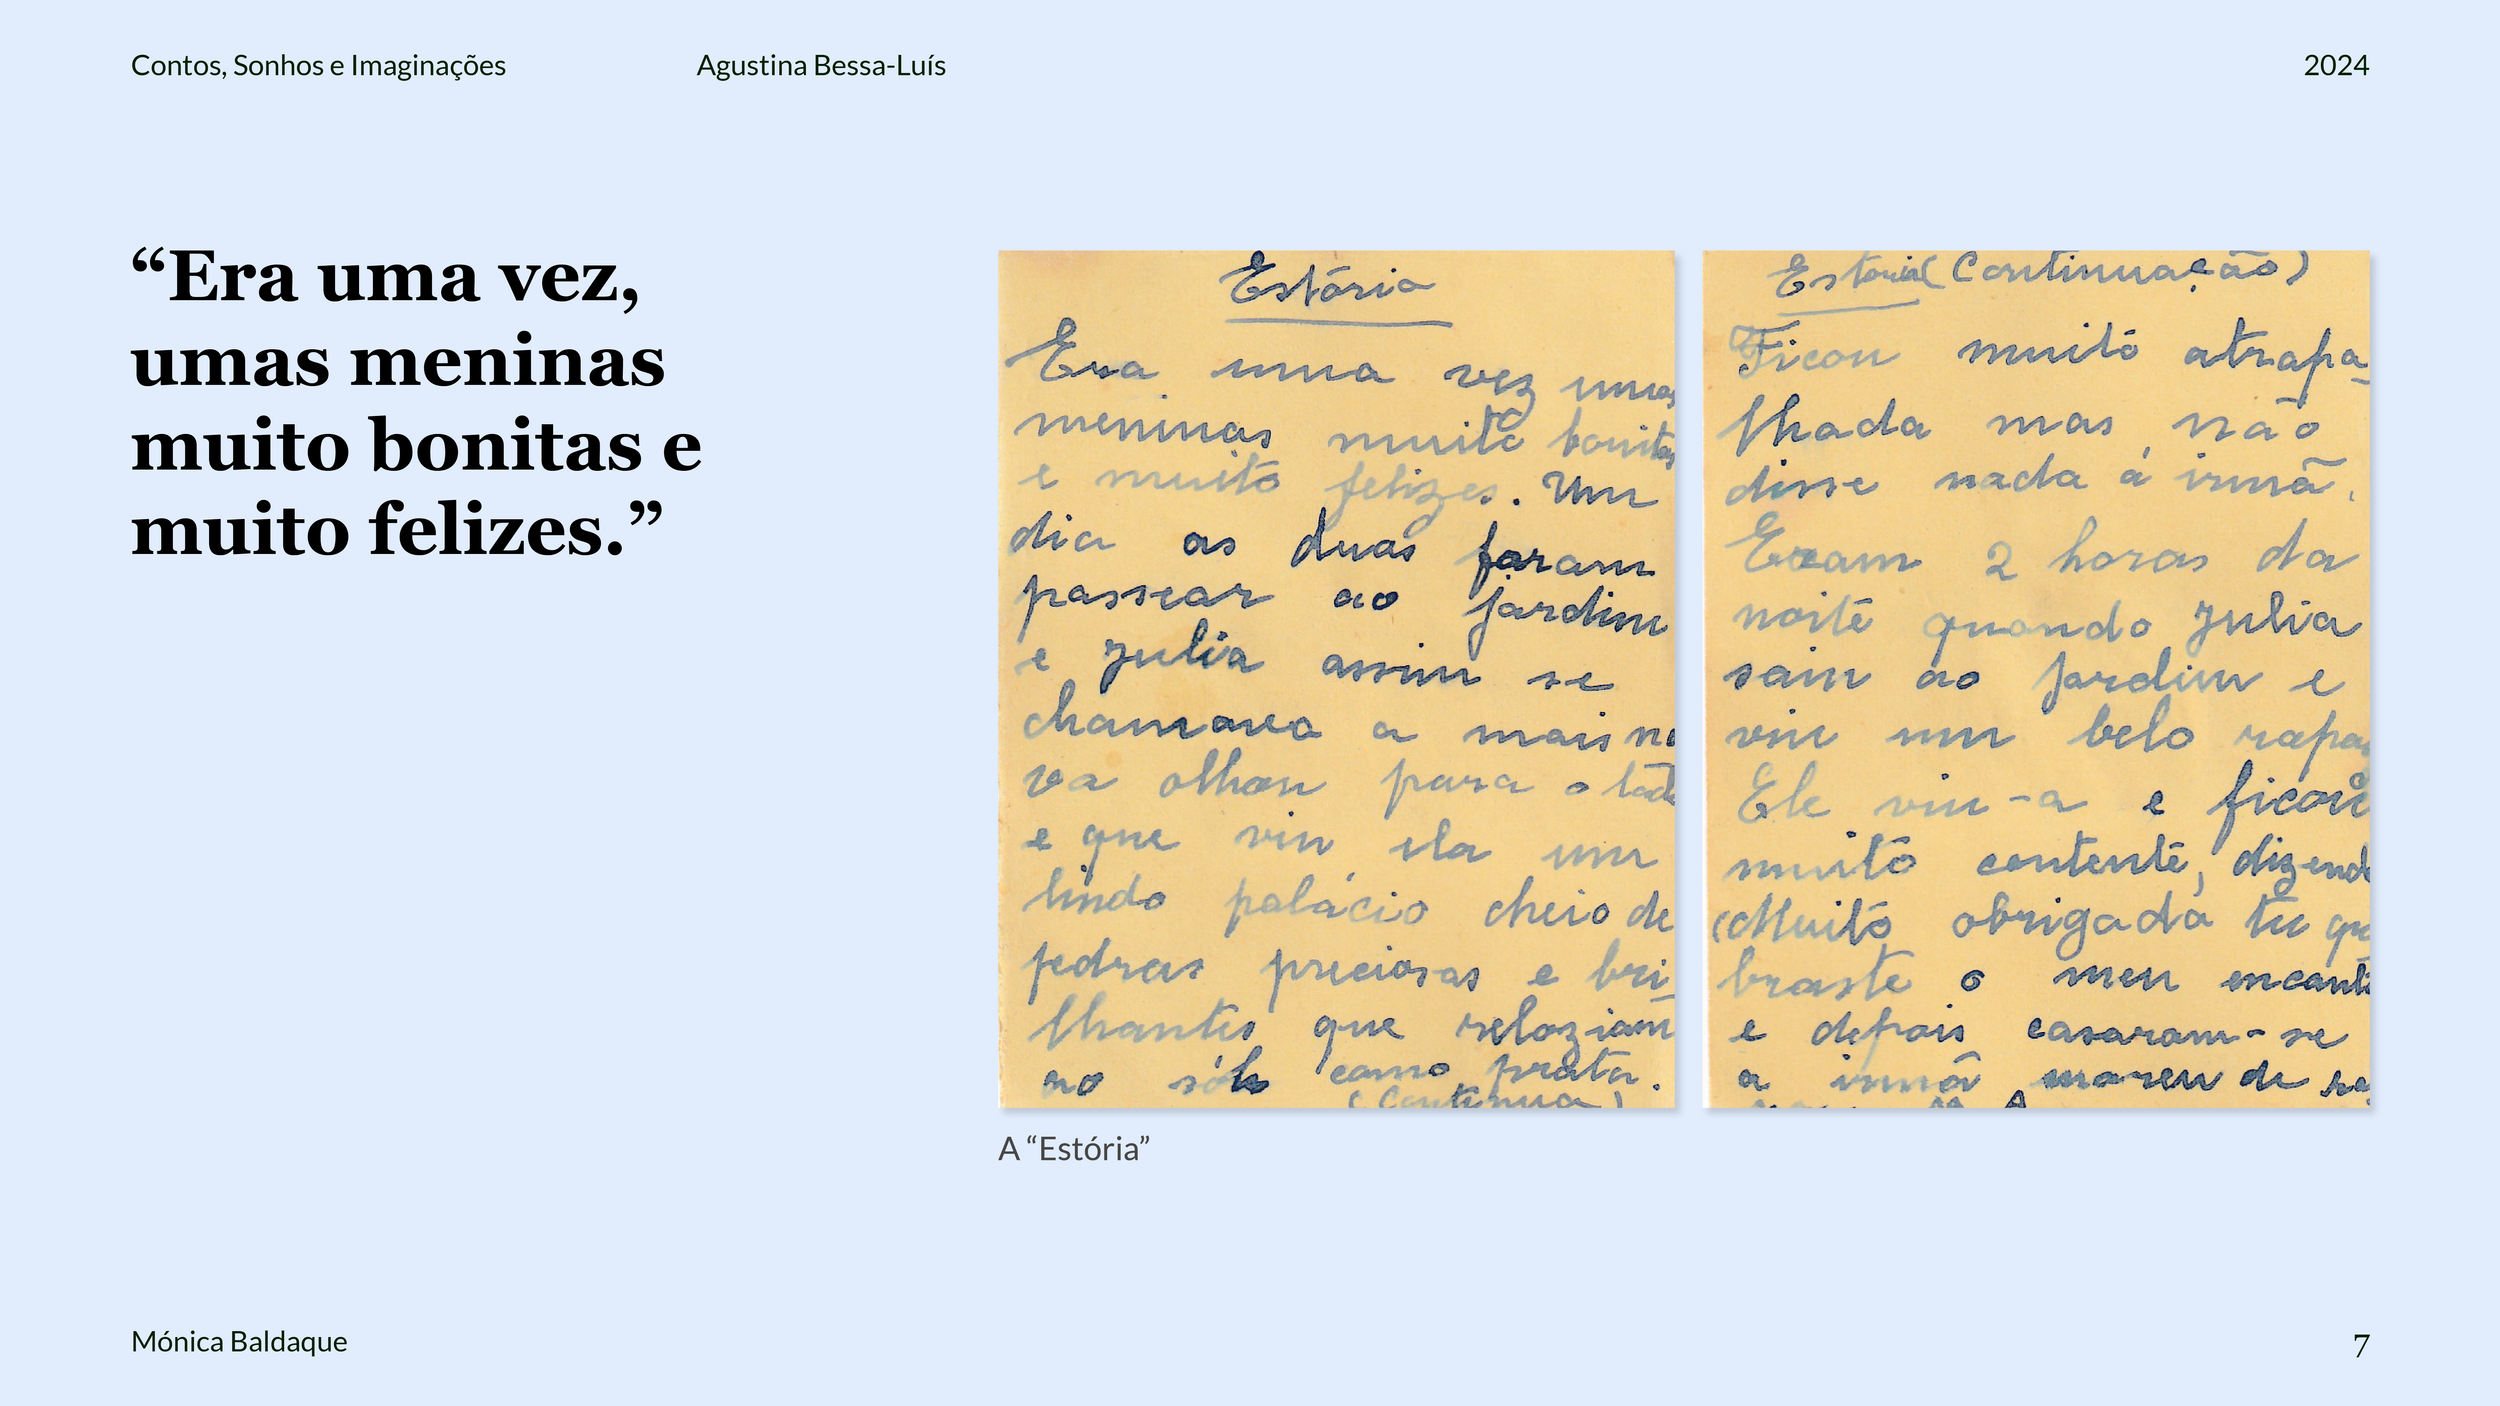 Contos, Sonhos e Imaginações
Agustina Bessa-Luís
2024
“Era uma vez,
umas meninas
muito bonitas e
muito felizes.”
Estória
Era uma vez umas
meninas muito bonitas
e muito felizes. Um
dia as duas foram
passear ao jardim
e Julia assim se
chamava a mais no
va olhou para o lado
e que viu ela um
lindo palácio cheio de
pedras preciosas e bri-
lhantes que reloziam
ao sól como prata.
(Continua)
Estória (Continuação)
Ficou muito atrapa-
lhada mas não
disse nada á irmã.
Eram 2 horas da
noite quando Julia
saiu ao jardim e
viu um belo rapaz
Ele viu-a e ficou
muito contente, dizend
(Muito obrigada tu que
braste o meu encanto
e depois casaram-se
a irmã moreu de
A “Estória”
Mónica Baldaque
7